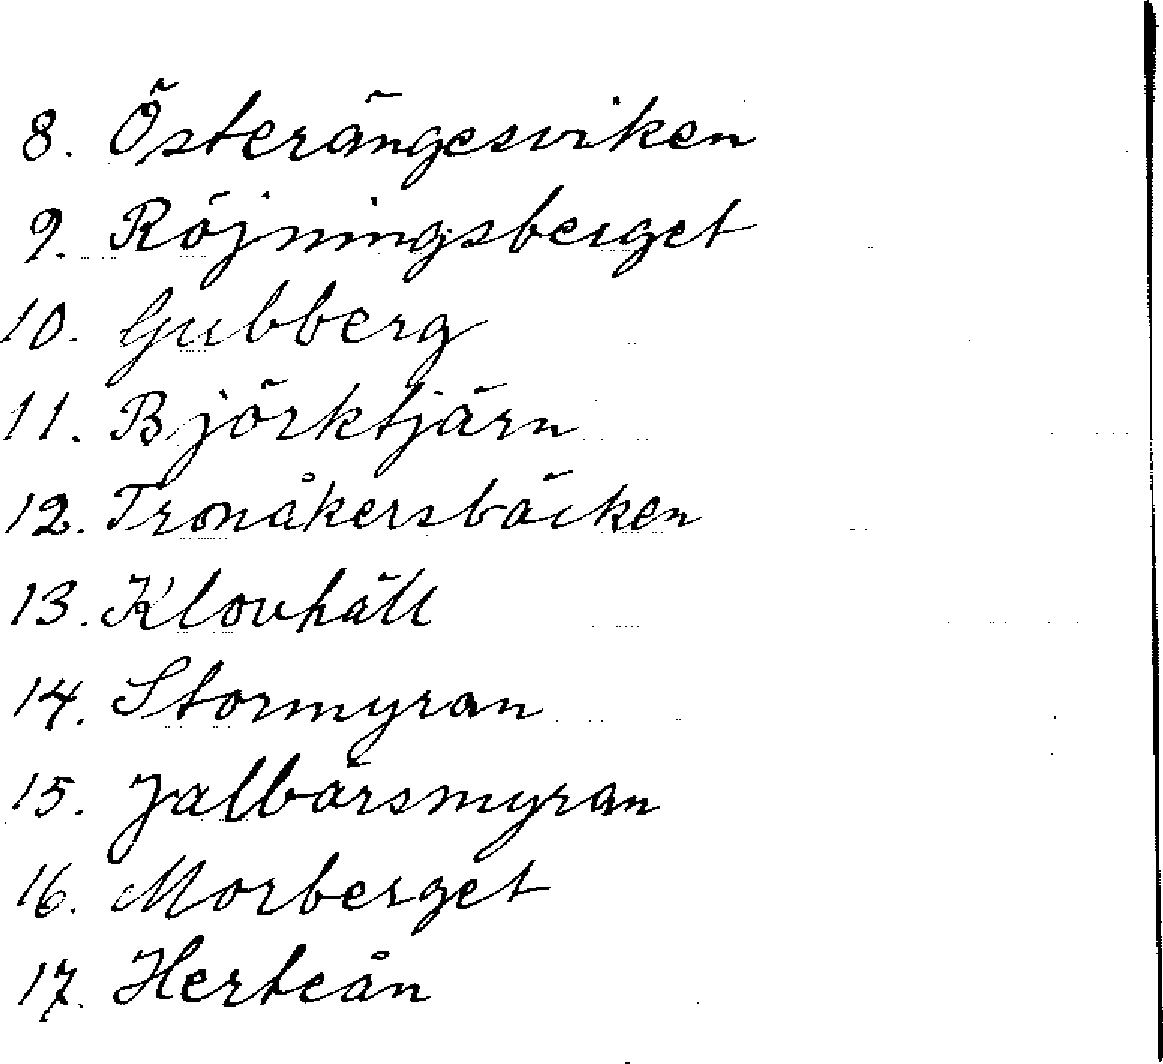 8. Österängesviken
9. Röjningsberget
10. Gubberg
11. Björktjärn
12. Tronåkersbäcken
13. Klovhäll
14. Stormyran
15. Jalbärsmyran
16. Morberget
17. Herteån